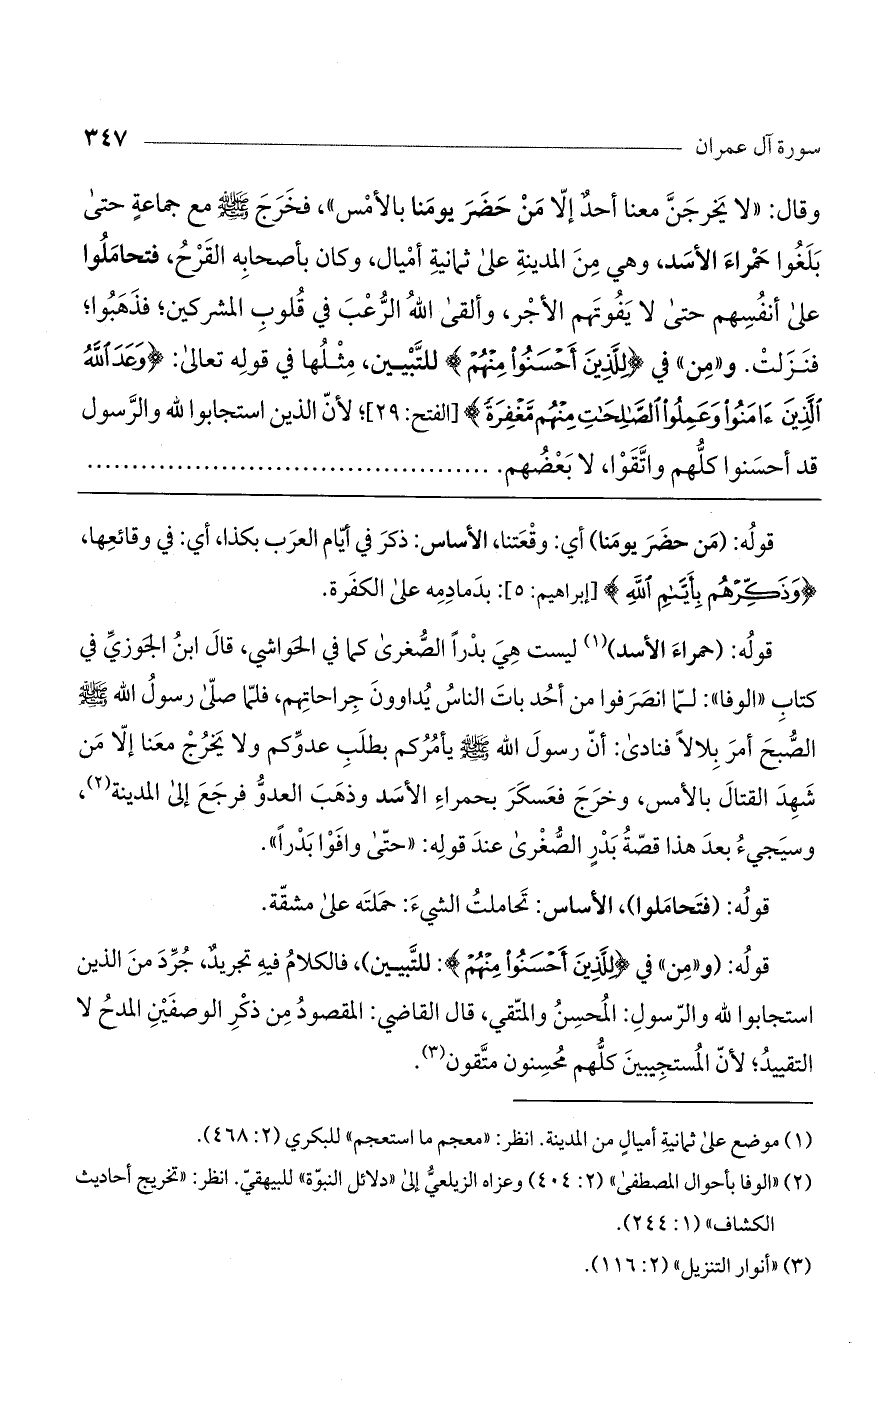 سورة آل عمران ٣٤٧
وقال: «لا يَخرجَنَّ معنا أحدٌ إلّا مَنْ حَضَرَ يومَنا بالأمْس»، فخَرَجَ ﷺ مع جماعةٍ حتىٰ
بَلَغُوا حَمْراءَ الأسَد، وهي مِنَ المدينةِ علىٰ ثمانيةِ أمْيال، وكان بأصحابِه القَرْحُ، فتحامَلُوا
علىٰ أنفُسِهم حتىٰ لا يَفُوتَهم الأجْر، وألقىٰ اللهُ الرُّعْبَ في قُلوبِ المشركين؛ فذَهَبُوا؛
فنَـزَلتْ. و«مِن» في ﴿لِلَّذِينَ أَحْسَنُوا۟ مِنْهُمْ﴾ للتَّبْيـين، مِثْـلُها في قولِه تعالىٰ: ﴿وَعَدَ ٱللَّهُ
ٱلَّذِينَ ءَامَنُوا۟ وَعَمِلُوا۟ ٱلصَّـٰلِحَـٰتِ مِنْهُم مَّغْفِرَةً﴾ [الفتح: ٢٩]؛ لأنّ الذين استجابوا لله والرَّسول
قد أحسَنوا كلُّهم واتَّقَوْا، لا بَعْضُهم. ............................................
قولُه: (مَن حضَرَ يومَنا) أي: وقْعَتنا، الأساس: ذكرَ في أيّام العرَب بكذا، أي: في وقائعِها،
﴿وَذَكِّرْهُم بِأَيَّىٰمِ ٱللَّهِ﴾ [إبراهيم: ٥]: بدَمادِمِه علىٰ الكفَرة.
قولُه: (حمراءَ الأسد)(١) ليست هِيَ بدْراً الصُّغرىٰ كما في الحَواشي، قالَ ابنُ الجَوزيِّ في
كتابِ «الوفا»: لـمّا انصَرَفوا من أحُد باتَ الناسُ يُداوونَ جِراحاتِهم، فلمّا صلّىٰ رسولُ الله ﷺ
الصُّبحَ أمرَ بِلالاً فنادىٰ: أنّ رسولَ الله ﷺ يأمُرُكم بطلَبِ عدوِّكم ولا يَخرُجْ معَنا إلّا مَن
شَهِدَ القتالَ بالأمس، وخرَجَ فعَسكَرَ بحمراءِ الأسَد وذهَبَ العدوُّ فرجَعَ إلىٰ المدينة(٢)،
وسيَجيءُ بعدَ هذا قصّةُ بَدْرٍ الصُّغْرىٰ عندَ قولِه: «حتّىٰ وافَوْا بَدْراً».
قولُه: (فتَحامَلوا)، الأساس: تَحاملتُ الشيءَ: حمَلتَه علىٰ مشقّة.
قولُه: (و«مِن» في ﴿لِلَّذِينَ أَحْسَنُوا۟ مِنْهُمْ﴾: للتَّبيـين)، فالكلامُ فيهِ تجريدٌ، جُرِّدَ منَ الذين
استجابوا لله والرّسولِ: المُحسِنُ والمتّقي، قال القاضي: المقصودُ مِن ذكْرِ الوصفَيْنِ المدحُ لا
التقييدُ؛ لأنّ المُستجِيبينَ كلُّهم مُحسِنون متَّقون(٣).
(١) موضع علىٰ ثمانيةِ أميالٍ من المدينة. انظر: «معجم ما استعجم» للبكري (٢: ٤٦٨).
(٢) «الوفا بأحوال المصطفىٰ» (٢: ٤٠٤) وعزاه الزيلعيُّ إلىٰ «دلائل النبوّة» للبيهقيّ. انظر: «تخريج أحاديث
الكشاف» (١: ٢٤٤).
(٣) «أنوار التنزيل» (٢: ١١٦).